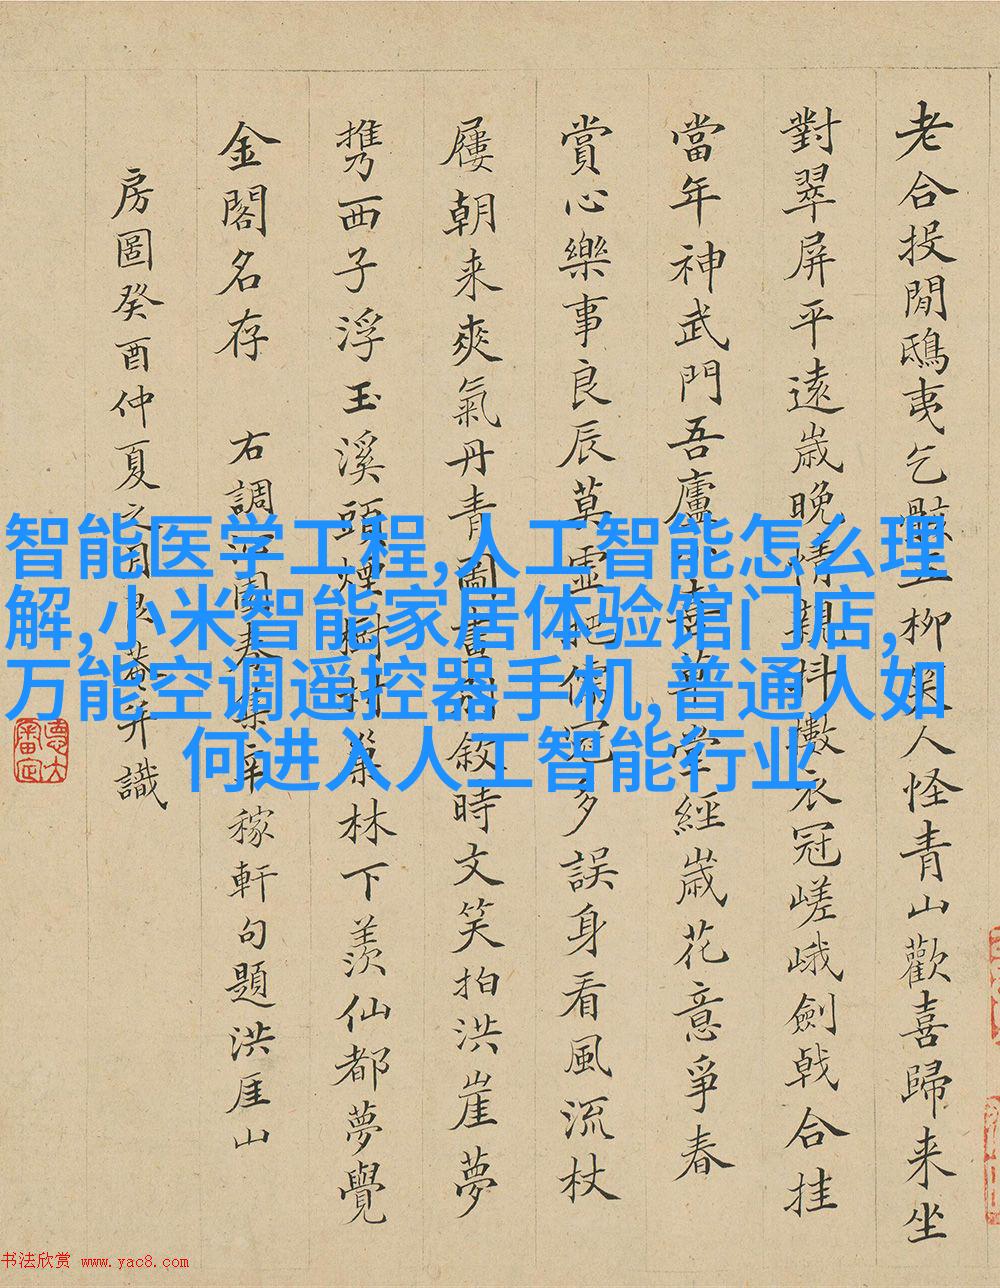 老合投閒鴟夷乞五柳人怪青山歡喜歸来坐
對翠屏平遠歲晚情親抖擻衣冠嵯峨劍戟合挂
當年神武門吾廬喜草堂經歲花意爭春
賞心樂事良辰莫虛把儒冠多誤身看風流杖
屨朝来爽氣丹青圖畫敘時文笑拍洪崖夢
携西子浮玉溪頭煙樹村巢林下羨仙都夢覺
金閣名存 右調沁園春集辛稼軒句題洪厓山
房圖癸酉仲夏之月菴并識
智能医学工程,人工智能怎么理
解,小米智能家居体验馆门店,
万能空调遥控器手机,普通人如
何进入人工智能行业
书法欣赏 www.yac8.com